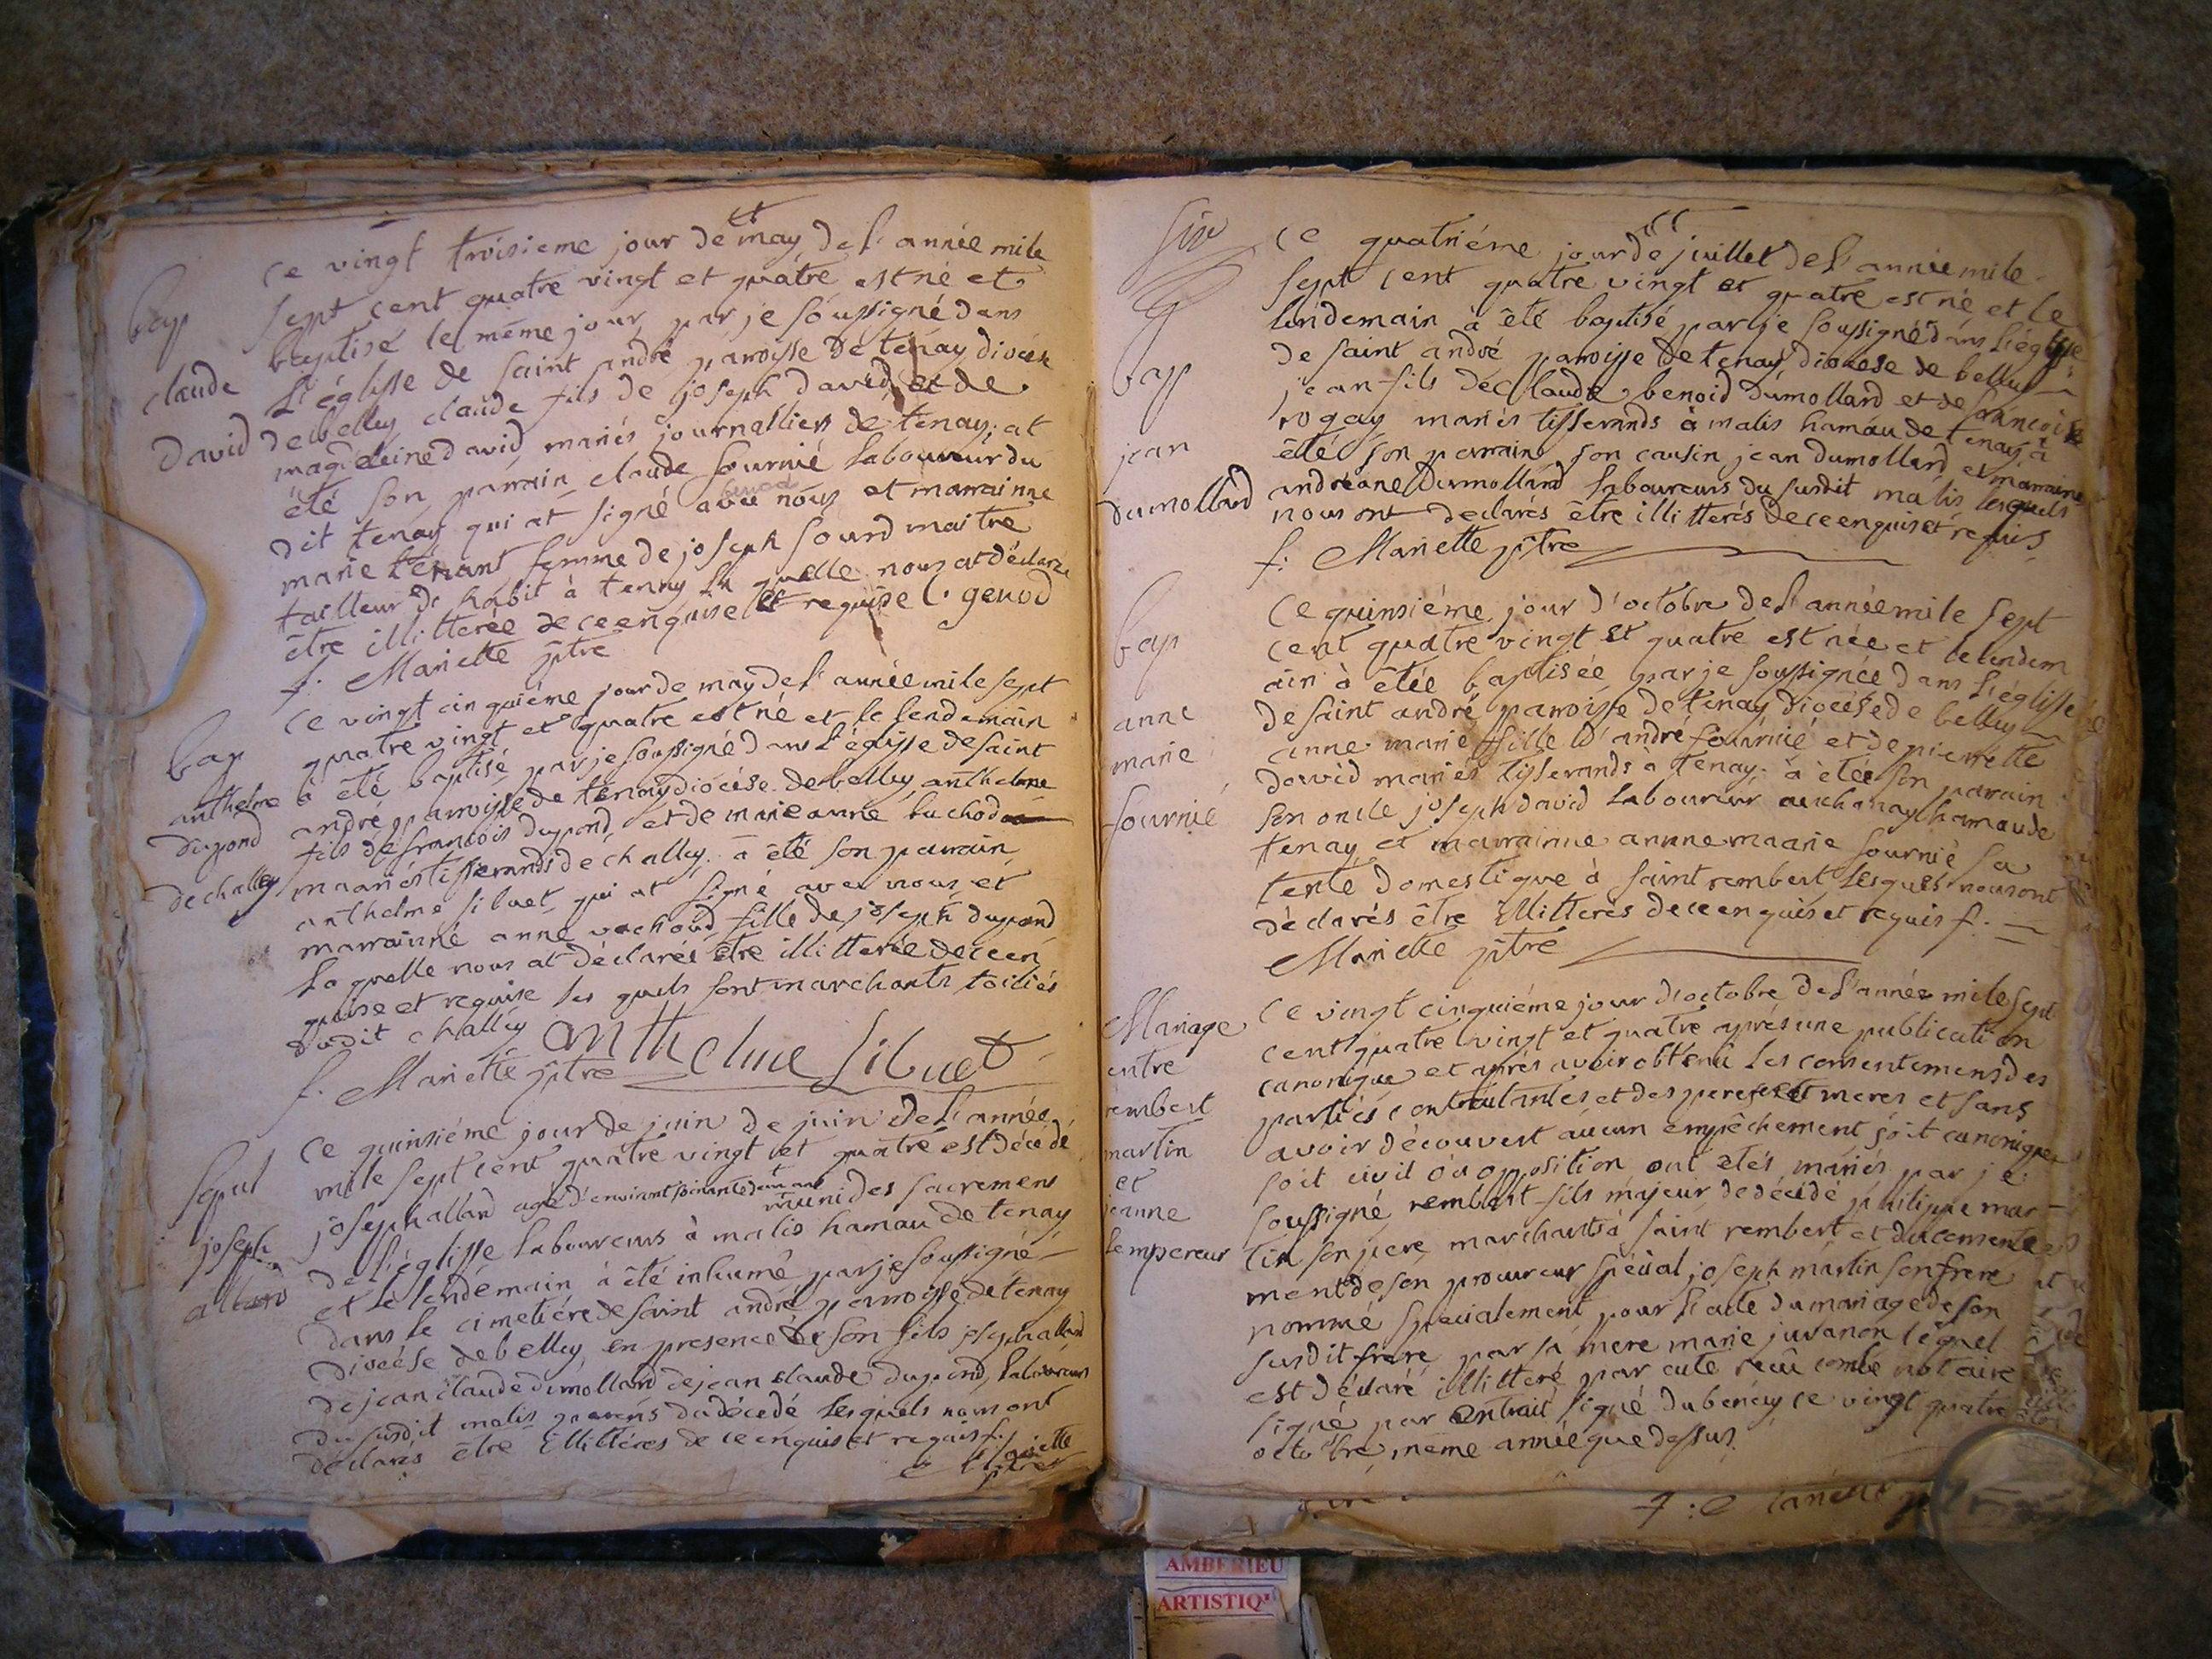 ce vingt troisieme jour de may de l'année mile
bap sept cent quatre vingt et quatre est né et
baptisé le même jour par je soussigné dans
claude l'églisse de saint andré paroisse de tenay diocese
david de belley claude fils de joseph david et de
magdeleine david mariés journalliers de tenay; at
été son parrain claude fournié laboureur du
dit tenay qui at signé avec nous et marrainne
marie tenant femme de joseph sourd maitre
tailleur d' habit à tenay la quelle nous at déclaré
être illitterée de ce enquise et requise C. genod
f. Mariette ptre
ce vingt cinquiéme jour de may de l' année mile sept
bap quatre vingt et quatre est né et le lendemain
anthelme à été baptisé par je soussigné dans l'églisse de saint
dupond andré paroisse de tenay diocése de belley anthelme
fils de francois dupond et de marie anne buchod
de challey maariés tisserands de challey. à été son parain
anthelme siluet qui at signé avec nous et
marrainne anne vachoud fille de joseph dupond
la quelle nous at déclarée être illitterée de ce en
quise et requise les quels sont marchants toiliés
dudit challey anthelme Siluet
f. Mariette ptre
ce quinsiéme jour de juin de juin de l' année
sepul mile sept cent quatre vingt et quatre est décédé
joseph allard agé d'environt soixante muni des sacremens
joseph de l'églisse laboureurs à malis hamau de tenay
allard et le lendemain à été inhumé par je soussigné
dans le cimetiére de saint andré paroisse de tenay
diocése de belley en presence de son fils joseph allard
de jean claude dumollard de jean claude dupond laboureurs
du susdit malis parens du décédé lesquels nous ont
déclarés être illitterés de ce enquis et requis f.
Mariette ptre
ce quatriéme jour de juillet de l' année mile
sept cent quatre vingt et quatre est né et le
lendemain à été baptisé par je soussigné dans l'églisse
bap de saint andré paroisse de tenay diocese de belley
jean fils de claude benoid dumollard et de francoise
rogay mariés tisserands à malis hamau de tenay à
jean été son parrain son causin jean dumollard et marraine
dumollard andréane dumollard laboureurs du susdit malis lesquels
nous ont declarés être illitterés de ce enquis et requis
f. Mariette ptre
ce quinsiéme jour d'octobre de l' année mile sept
bap cent quatre vingt et quatre est née et le lendem
ain à étée baptisée par je soussignée dans l'églisse
anne de saint andré paroisse de tenay diocése de belley
marie anne marie fille d' andré fournié et de pierrette
david mariés tisserands à tenay; à étée son parain
fournié son oncle joseph david laboureur au chanay hamau de
tenay et marrainne annne maarie fournié sa
tente domestique à saint rembert lesquels nous ont
déclarés être illitterés de ce enquis et requis f.
Mariette ptre
ce vingt cinquiéme jour d'octobre de l'année mile sept
Mariage cent quatre vingt et quatre aprés une publication
entre canonique et aprés avoir obtenu les consentemens des
rembert parties contractantes et des peres et meres et sans
martin avoir découvert aucun empêchement soit canonique
et soit civil ou opposition ont étés mariés par je
jeanne soussigné rembert fils majeur de décédé philippe mar
lempereur tin son pere marchants à saint rembert et du
ment de son procureur spécial joseph martin son frere
nommé specialement pour l'acte du mariage de son
susdit frere par sa mere marie juvanon léquel
est déclaré illitteré par acte recû combe notaire
signé par signé ce vingt quatre
octobre même année que dessus.
AMBERIEU
ARTISTIQ